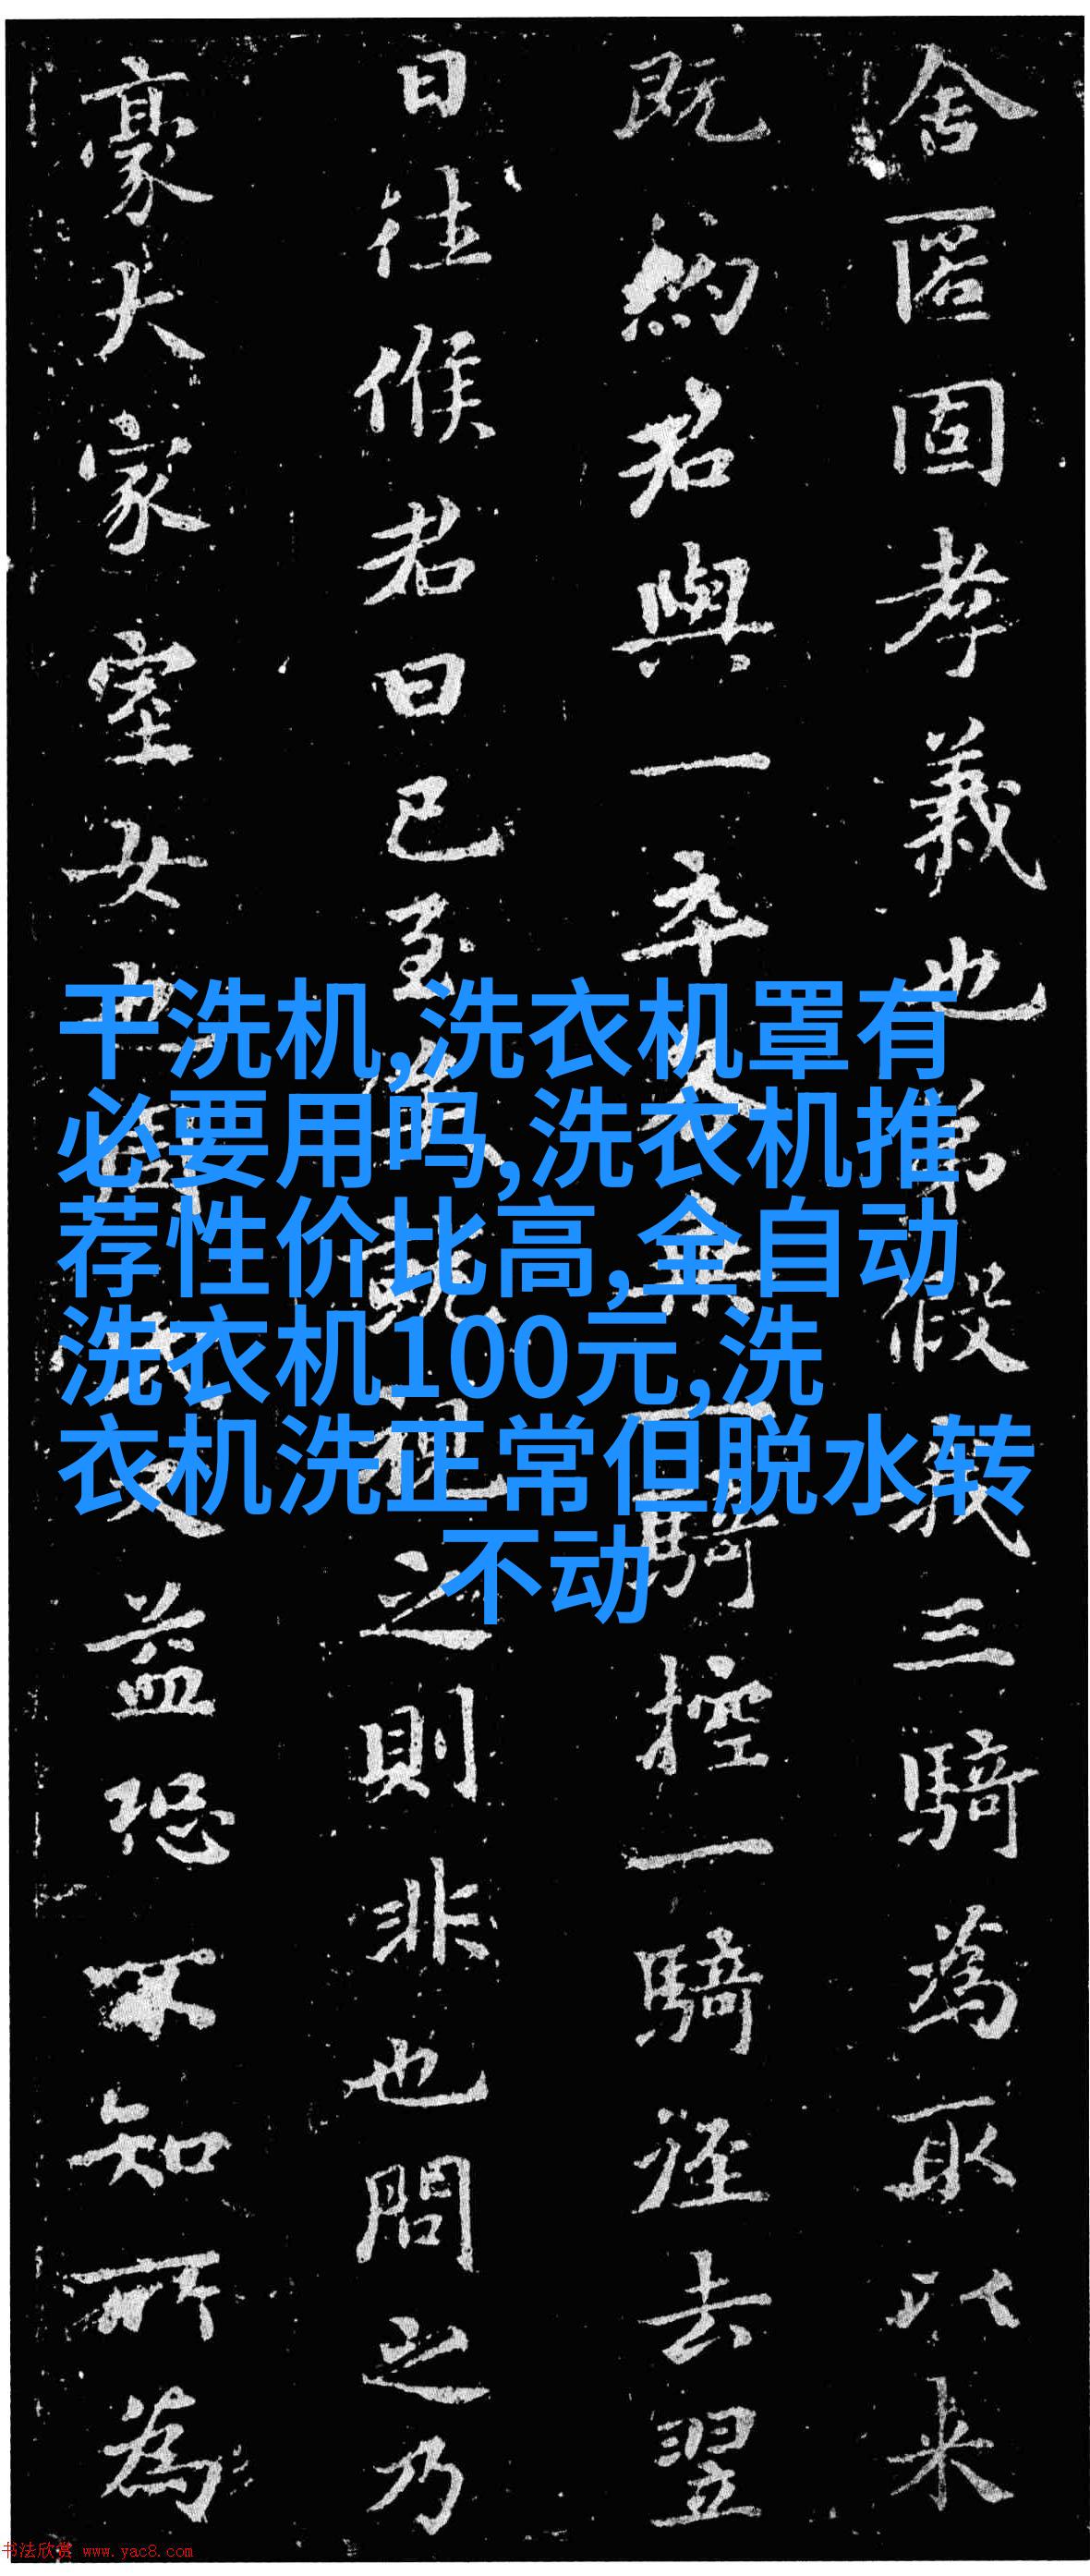 舍匿固孝義也弟假我三騎為取以来
既約君與一卒騎控一騎径去翌
日往候君曰已至之則非也問之乃
豪大家室女也益恐不知所為
干洗机,洗衣机罩有
必要用吗,洗衣机推
荐性价比高,全自动
洗衣机100元,洗
衣机洗正常但脱水转
不动
书法欣赏 www.yac8.com